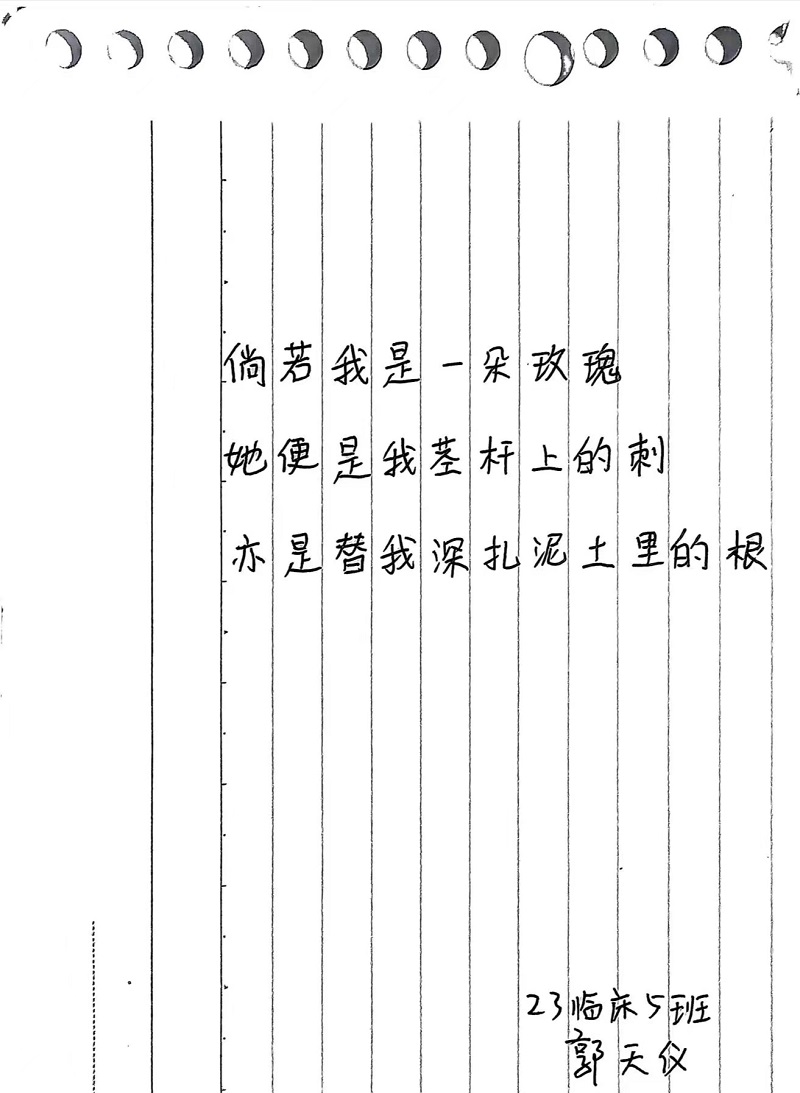 倘若我是一朵玫瑰
她便是我茎杆上的刺
亦是替我深扎泥土里的根
23临床5班
郭天仪